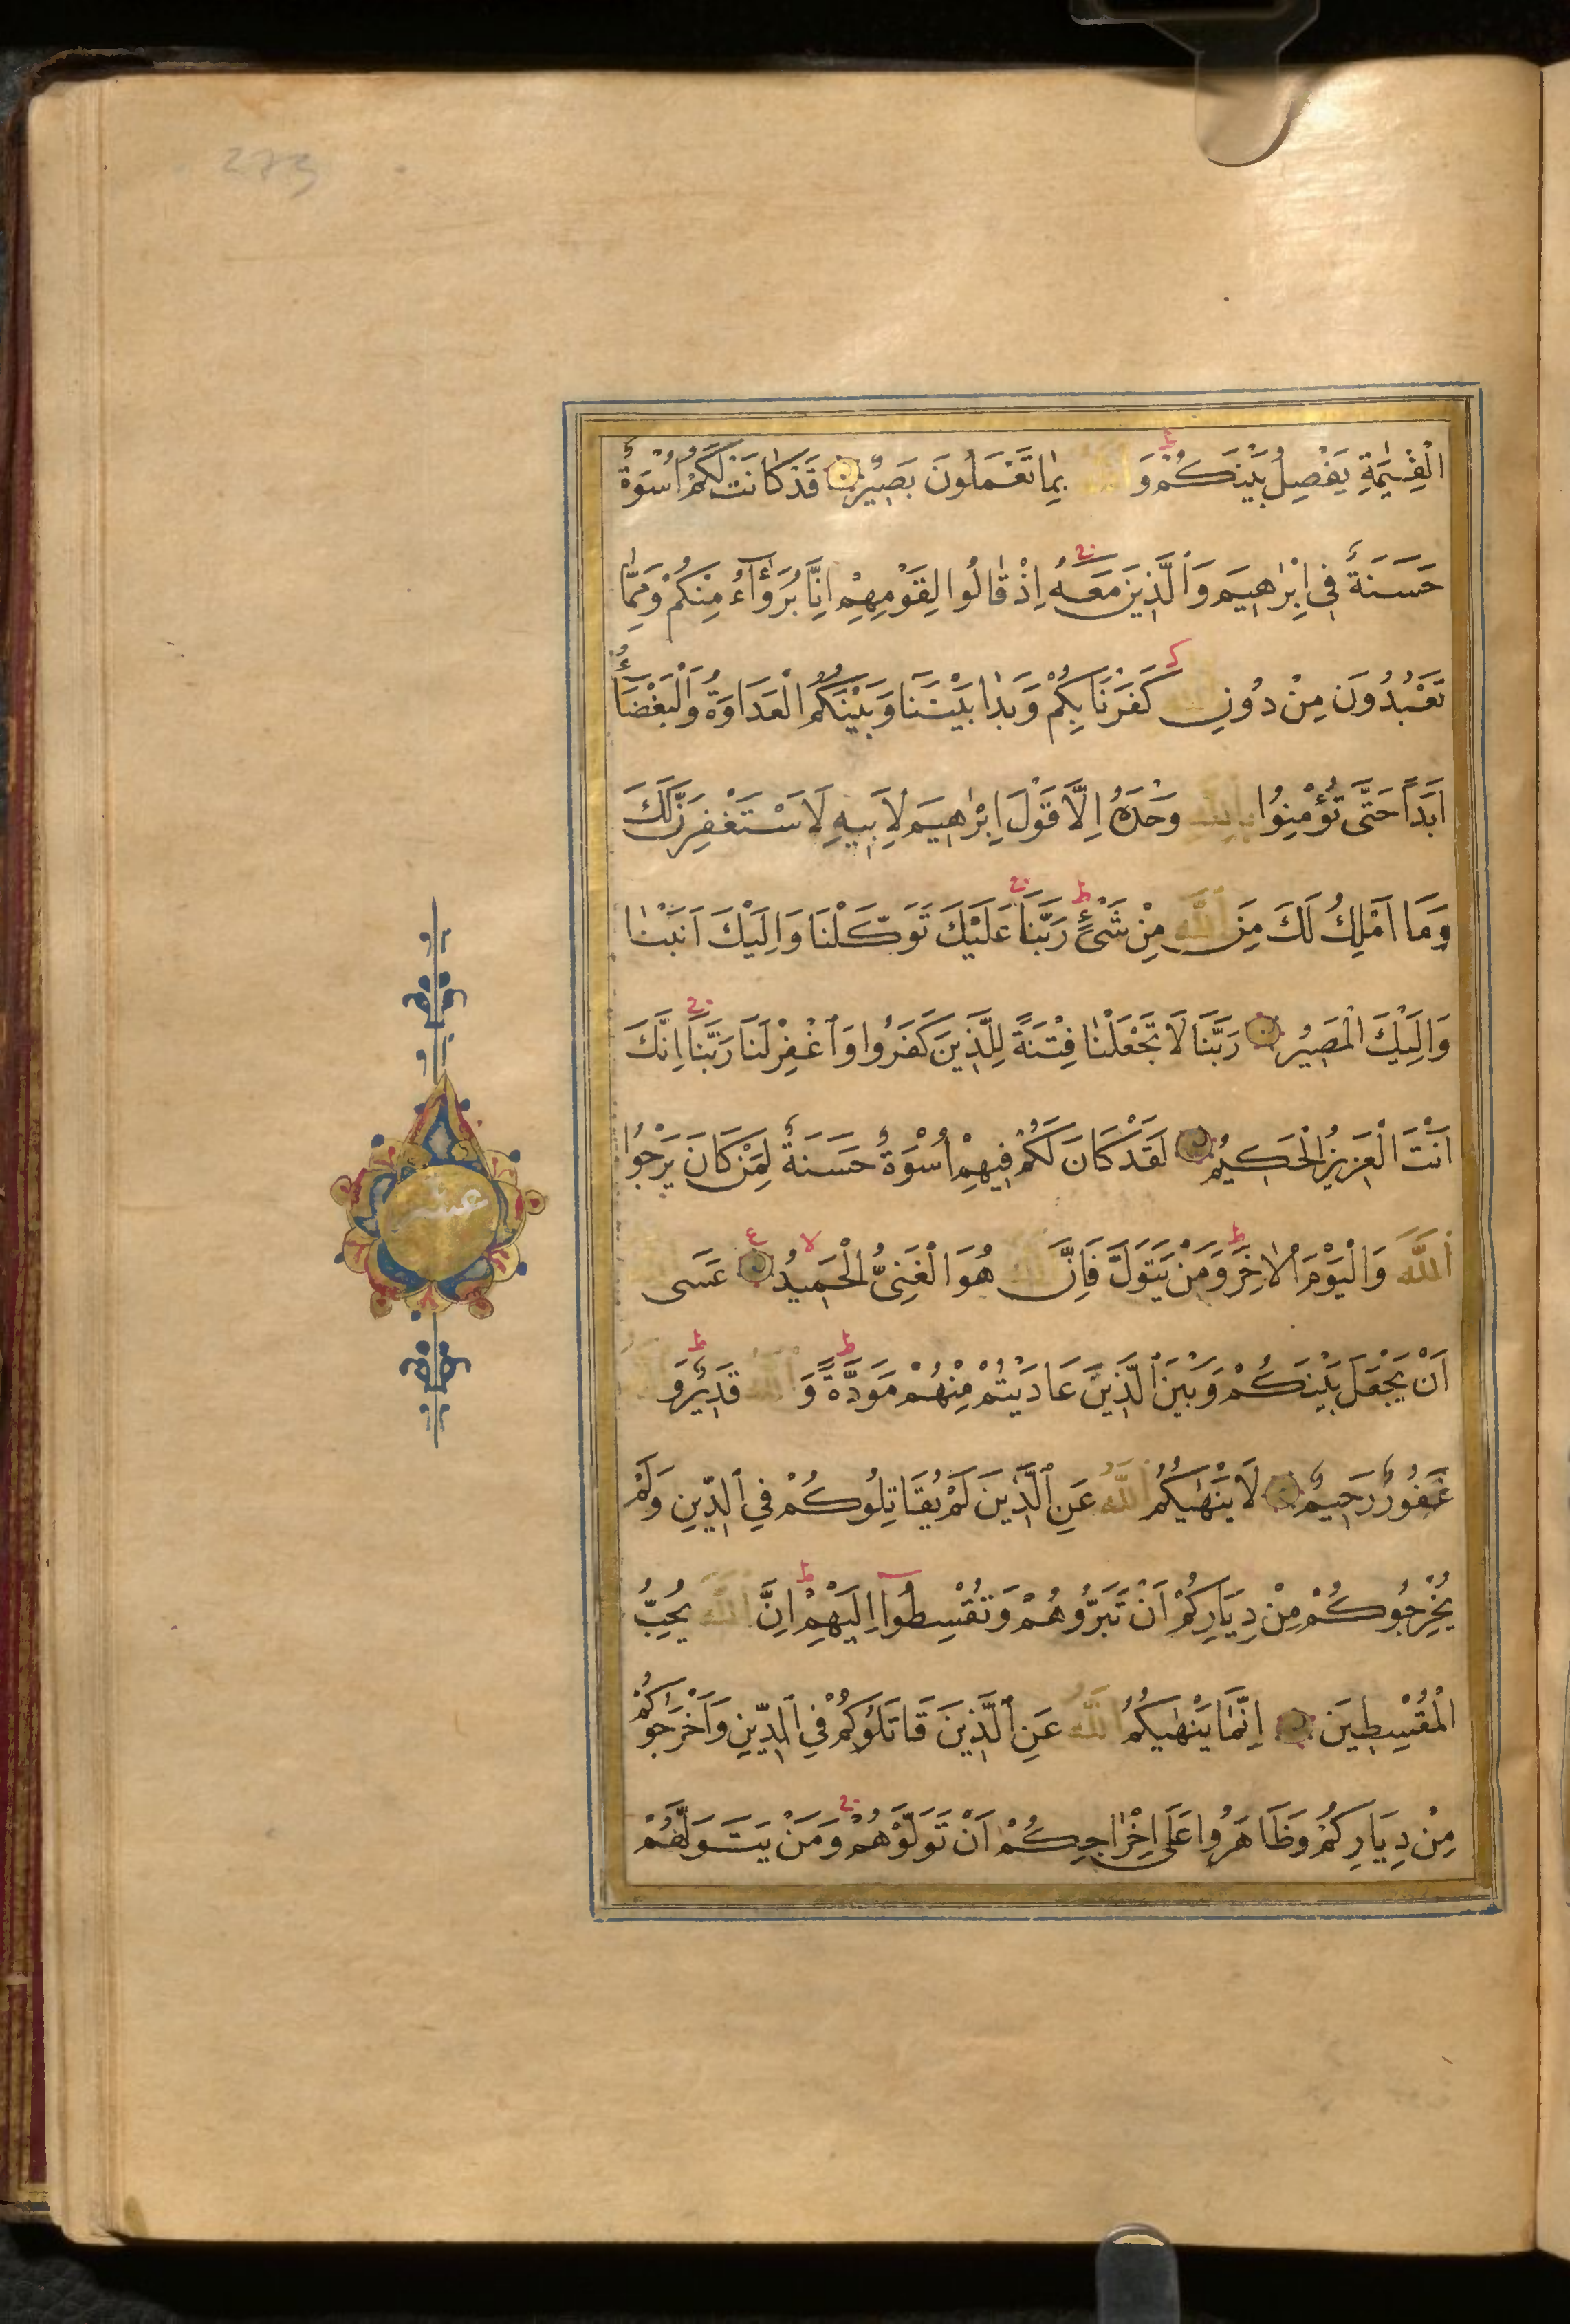 273
الْقِيٰمَةِ يَفْصِلُ بَيْنَكُمْ وَاللّٰهُ بِمَا تَعْمَلُونَ بَصِيرٌ قَدْ كَانَتْ لَكُمْ اُسْوَةٌ
حَسَنَةٌ فِي اِبْرٰهِيمَ وَالَّذِينَ مَعَهُ اِذْ قَالُوا لِقَوْمِهِمْ اِنَّا بُرَءٰٓؤُا مِنْكُمْ وَمِمَّا
تَعْبُدُونَ مِنْ دُونِ اللّٰهِ كَفَرْنَا بِكُمْ وَبَدَا بَيْنَنَا وَبَيْنَكُمُ الْعَدَاوَةُ وَالْبَغْضَآءُ
اَبَدًا حَتَّى تُؤْمِنُوا بِاللّٰهِ وَحْدَهُ اِلَّا قَوْلَ اِبْرٰهِيمَ لِاَبِيهِ لَاَسْتَغْفِرَنَّ لَكَ
وَمَا اَمْلِكُ لَكَ مِنَ اللّٰهِ مِنْ شَيْءٍ رَبَّنَا عَلَيْكَ تَوَكَّلْنَا وَاِلَيْكَ اَنَبْنَا
وَاِلَيْكَ الْمَصِيرُ رَبَّنَا لَا تَجْعَلْنَا فِتْنَةً لِلَّذِينَ كَفَرُوا وَاغْفِرْ لَنَا رَبَّنَا اِنَّكَ
اَنْتَ الْعَزِيزُ الْحَكِيمُ لَقَدْ كَانَ لَكُمْ فِيهِمْ اُسْوَةٌ حَسَنَةٌ لِمَنْ كَانَ يَرْجُوا
عشر
اللّٰهَ وَالْيَوْمَ الْاٰخِرَ وَمَنْ يَتَوَلَّ فَاِنَّ اللّٰهَ هُوَ الْغَنِيُّ الْحَمِيدُ عَسَى اللّٰهُ
اَنْ يَجْعَلَ بَيْنَكُمْ وَبَيْنَ الَّذِينَ عَادَيْتُمْ مِنْهُمْ مَوَدَّةً وَاللّٰهُ قَدِيرٌ وَاللّٰهُ
غَفُورٌ رَحِيمٌ لَا يَنْهٰيكُمُ اللّٰهُ عَنِ الَّذِينَ لَمْ يُقَاتِلُوكُمْ فِي الدِّينِ وَلَمْ
يُخْرِجُوكُمْ مِنْ دِيَارِكُمْ اَنْ تَبَرُّوهُمْ وَتُقْسِطُوٓا اِلَيْهِمْ اِنَّ اللّٰهَ يُحِبُّ
الْمُقْسِطِينَ اِنَّمَا يَنْهٰيكُمُ اللّٰهُ عَنِ الَّذِينَ قَاتَلُوكُمْ فِي الدِّينِ وَاَخْرَجُوكُمْ
مِنْ دِيَارِكُمْ وَظَاهَرُوا عَلَى اِخْرَاجِكُمْ اَنْ تَوَلَّوْهُمْ وَمَنْ يَتَوَلَّهُمْ